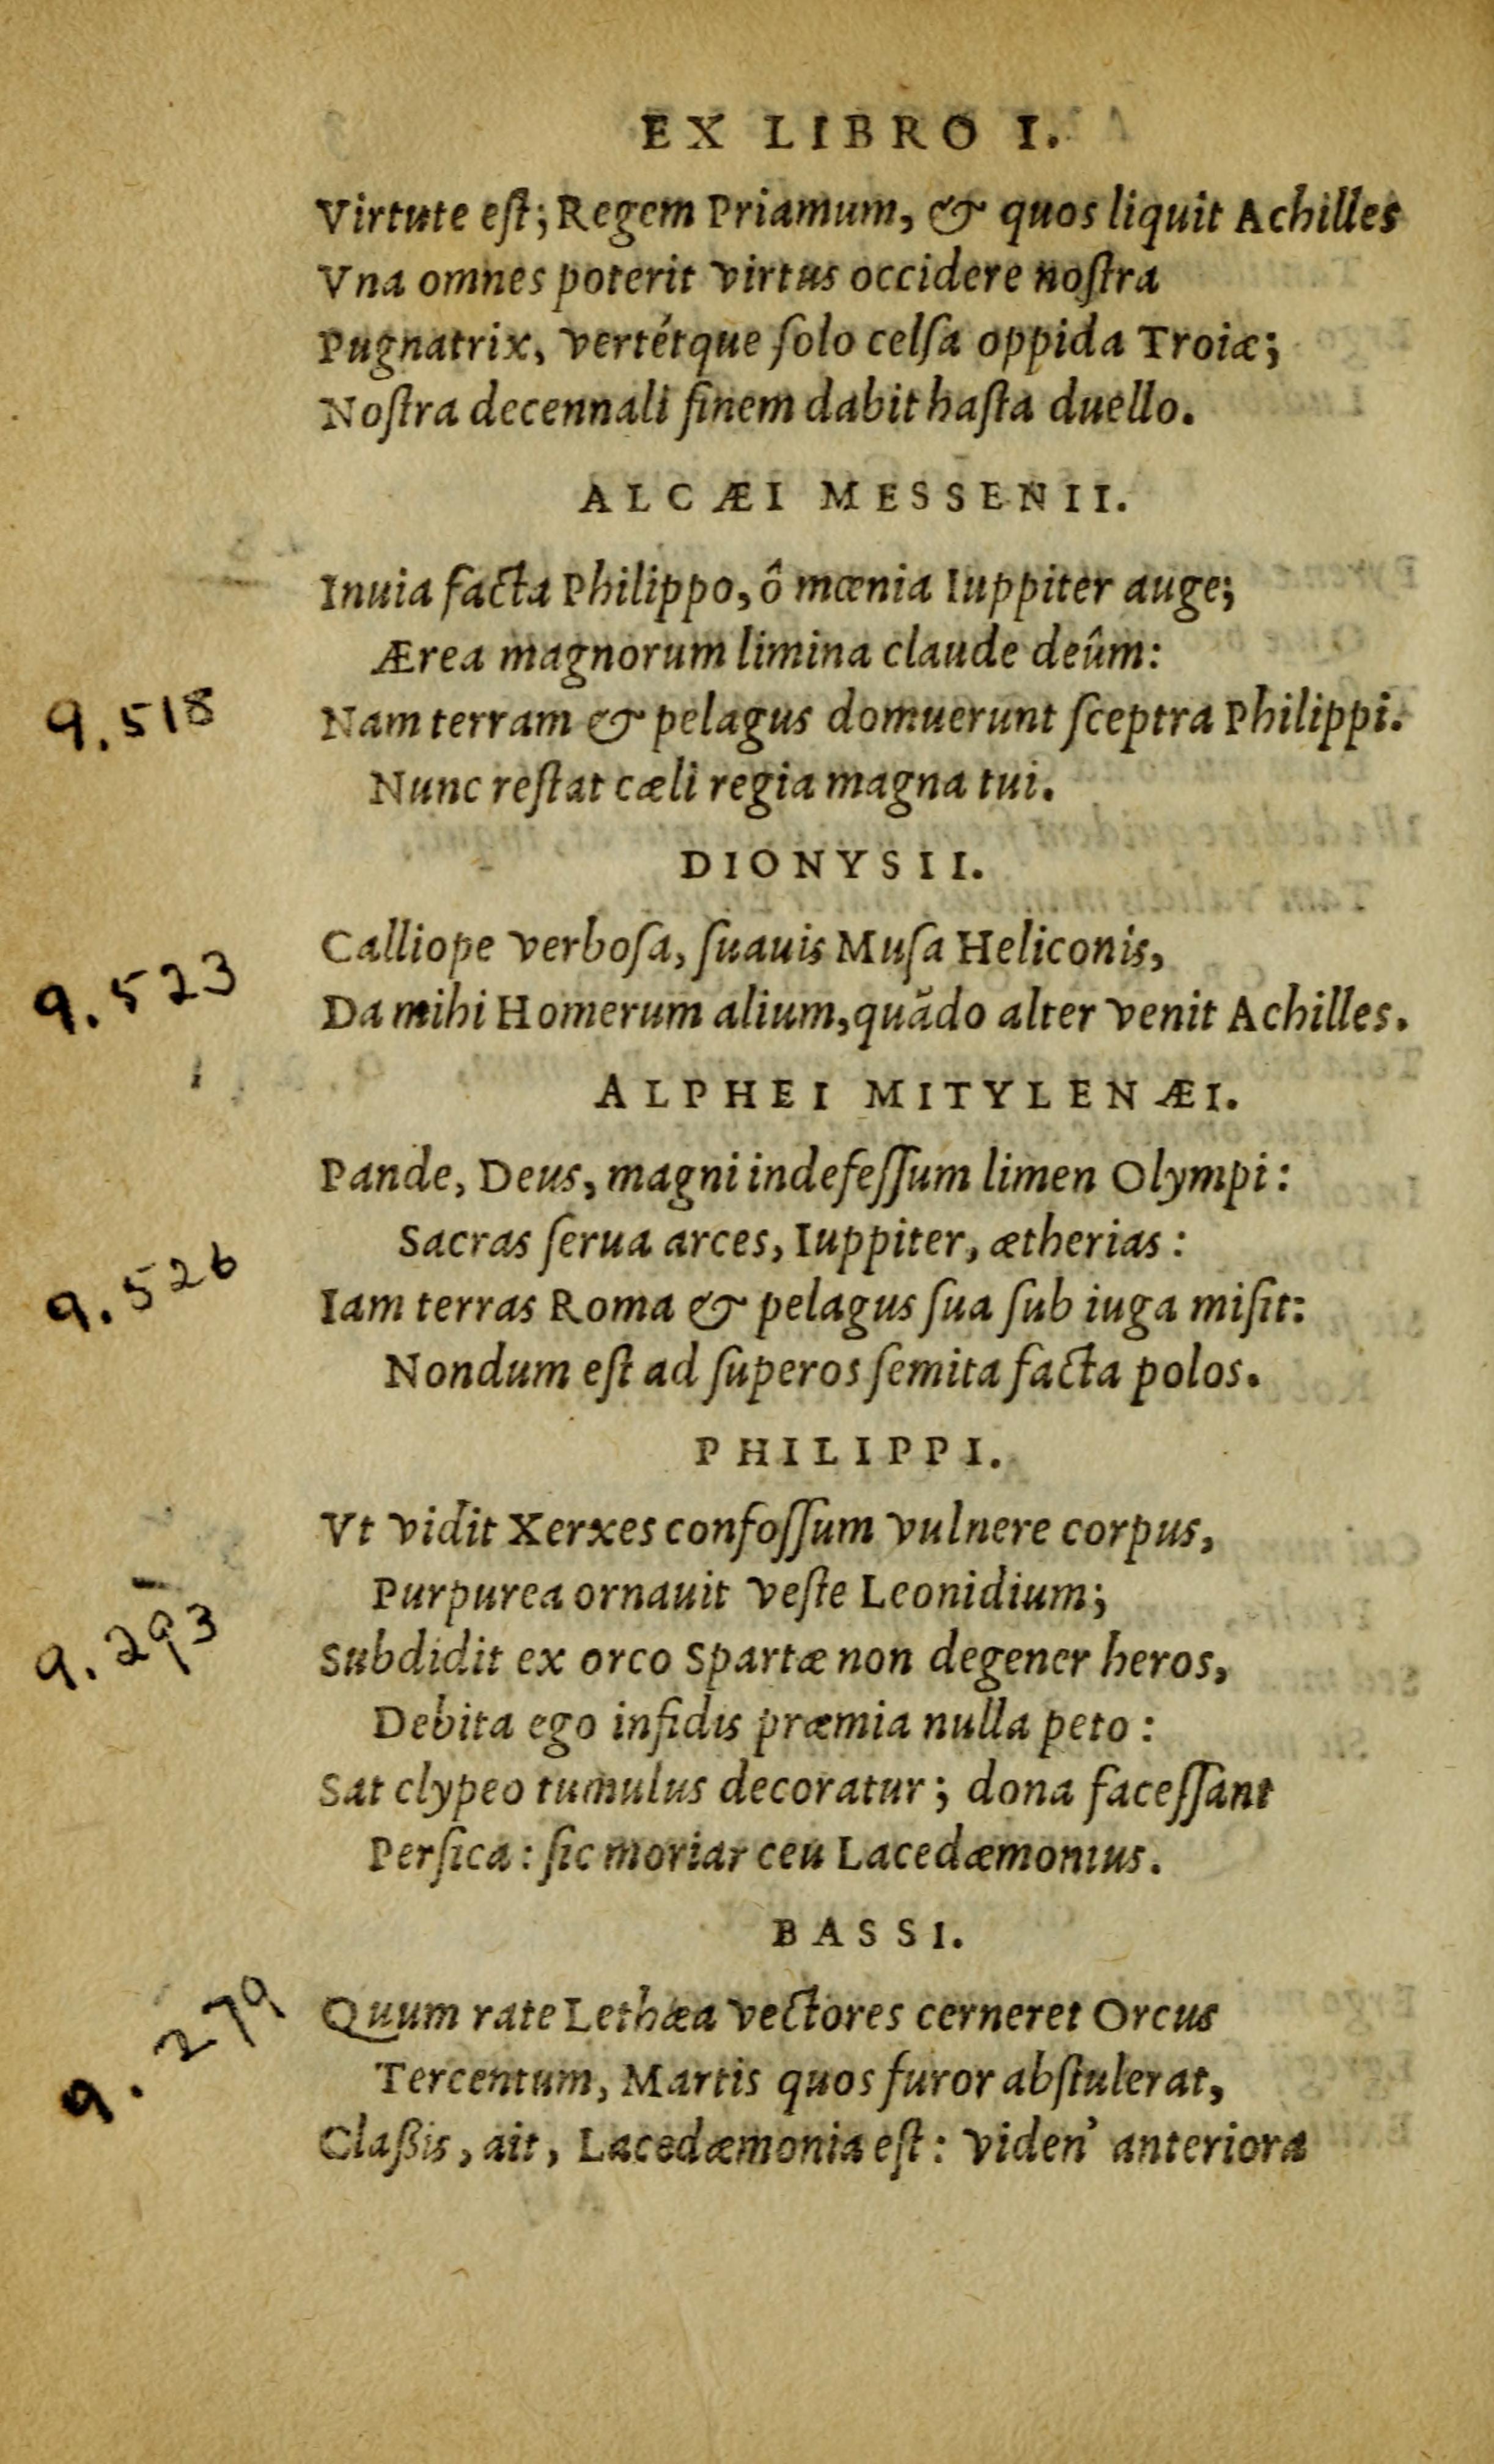 EX LIBRO I.
Virtute eſt; Regem Priamum, & quos liquit Achilles
Vna omnes poterit virtus occidere noſtra
Pugnatrix, vertétque ſolo celſa oppida Troiæ;
Noſtra decennali finem dabit haſta duello.
ALCÆI MESSENII.
Inuia facta Philippo, ô mœnia Iuppiter auge;
Ærea magnorum limina claude deûm:
9.518
Nam terram & pelagus domuerunt ſceptra Philippi.
Nunc reſtat cæli regia magna tui.
DIONYSII.
Calliope verboſa, ſuauis Muſa Heliconis,
9.523
Da mihi Homerum alium, quādo alter venit Achilles.
ALPHEI MITYLENÆI.
Pande, Deus, magni indefeſſum limen Olympi:
Sacras ſerua arces, Iuppiter, ætherias:
9.526
Iam terras Roma & pelagus ſua ſub iuga miſit:
Nondum eſt ad ſuperos ſemita facta polos.
PHILIPPI.
Vt vidit Xerxes confoſſum vulnere corpus,
Purpurea ornauit veſte Leonidium;
9.293
Subdidit ex orco Spartæ non degener heros,
Debita ego infidis præmia nulla peto:
Sat clypeo tumulus decoratur; dona faceſſant
Perſica: ſic moriar ceu Lacedæmonius.
BASSI.
9.279
Quum rate Lethæa vectores cerneret Orcus
Tercentum, Martis quos furor abſtulerat,
Claßis, ait, Lacedæmonia eſt: viden' anteriora